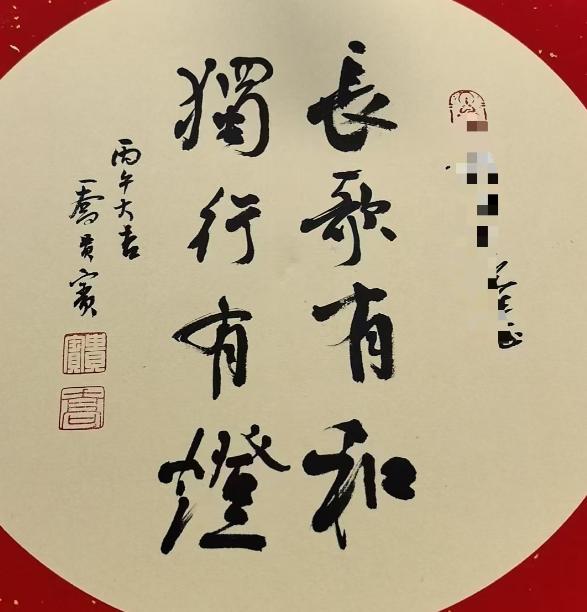 長歌有和
獨行有燈
丙午大吉
喬貴賓